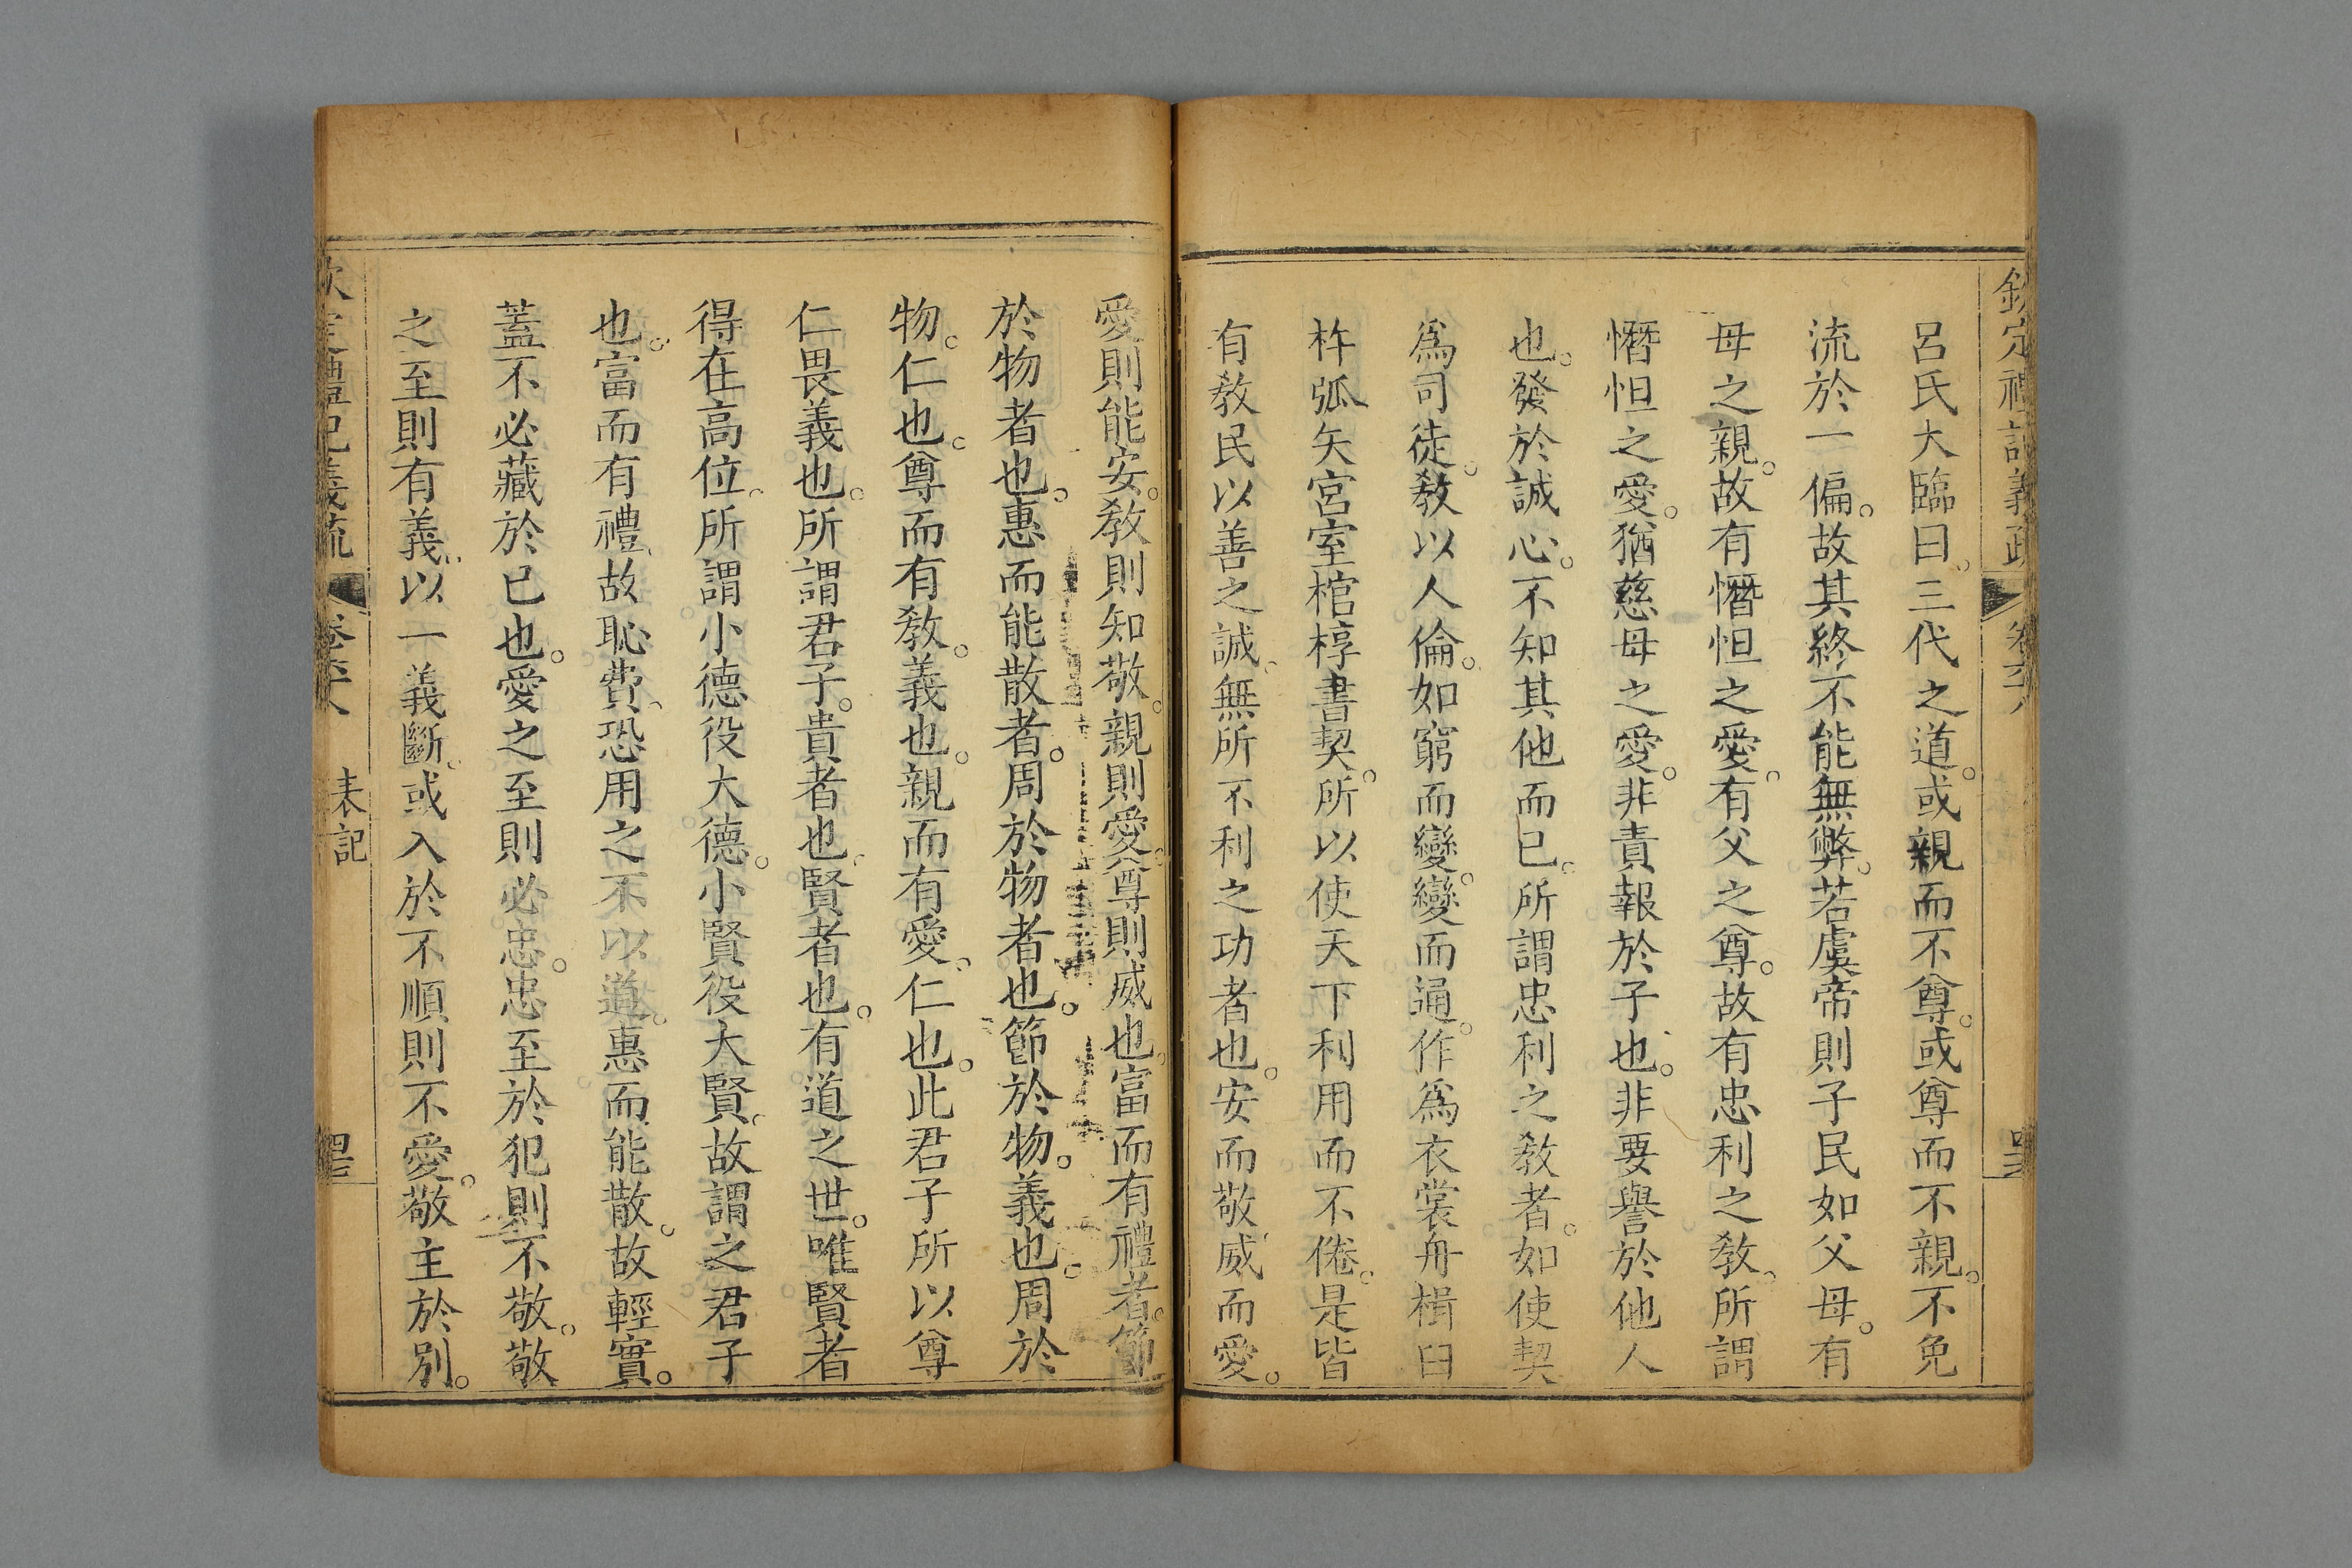 欽定禮記義疏 卷六十八
呂氏大臨曰。三代之道。或親而不尊。或尊而不親。不免
流於一偏。故其終不能無弊。若虞帝則子民如父母。有
母之親。故有憯怛之愛。有父之尊。故有忠利之敎。所謂
憯怛之愛。猶慈母之愛。非責報於子也。非要譽於他人
也。發於誠心。不知其他而已。所謂忠利之敎者。如使契
爲司徒。敎以人倫。如窮而變。變而通。作爲衣裳舟楫臼
杵弧矢宮室棺椁書契。所以使天下利用而不倦。是皆
有敎民以善之誠。無所不利之功者也。安而敬。威而愛。
愛則能安。敎則知敬。親則愛。尊則威也。富而有禮者。節
於物者也。惠而能散者。周於物者也。節於物。義也。周於
物。仁也。尊而有敎。義也。親而有愛。仁也。此君子所以尊
仁畏義也。所謂君子。貴者也。賢者也。有道之世。唯賢者
得在高位。所謂小德役大德。小賢役大賢。故謂之君子
也。富而有禮。故恥費。恐用之不以道。惠而能散。故輕實。
蓋不必藏於已也。愛之至則必忠。忠至於犯則不敬。敬
之至則有義。以一義斷。或入於不順則不愛。敬主於別。
欽定禮記義疏 卷六十八 表記